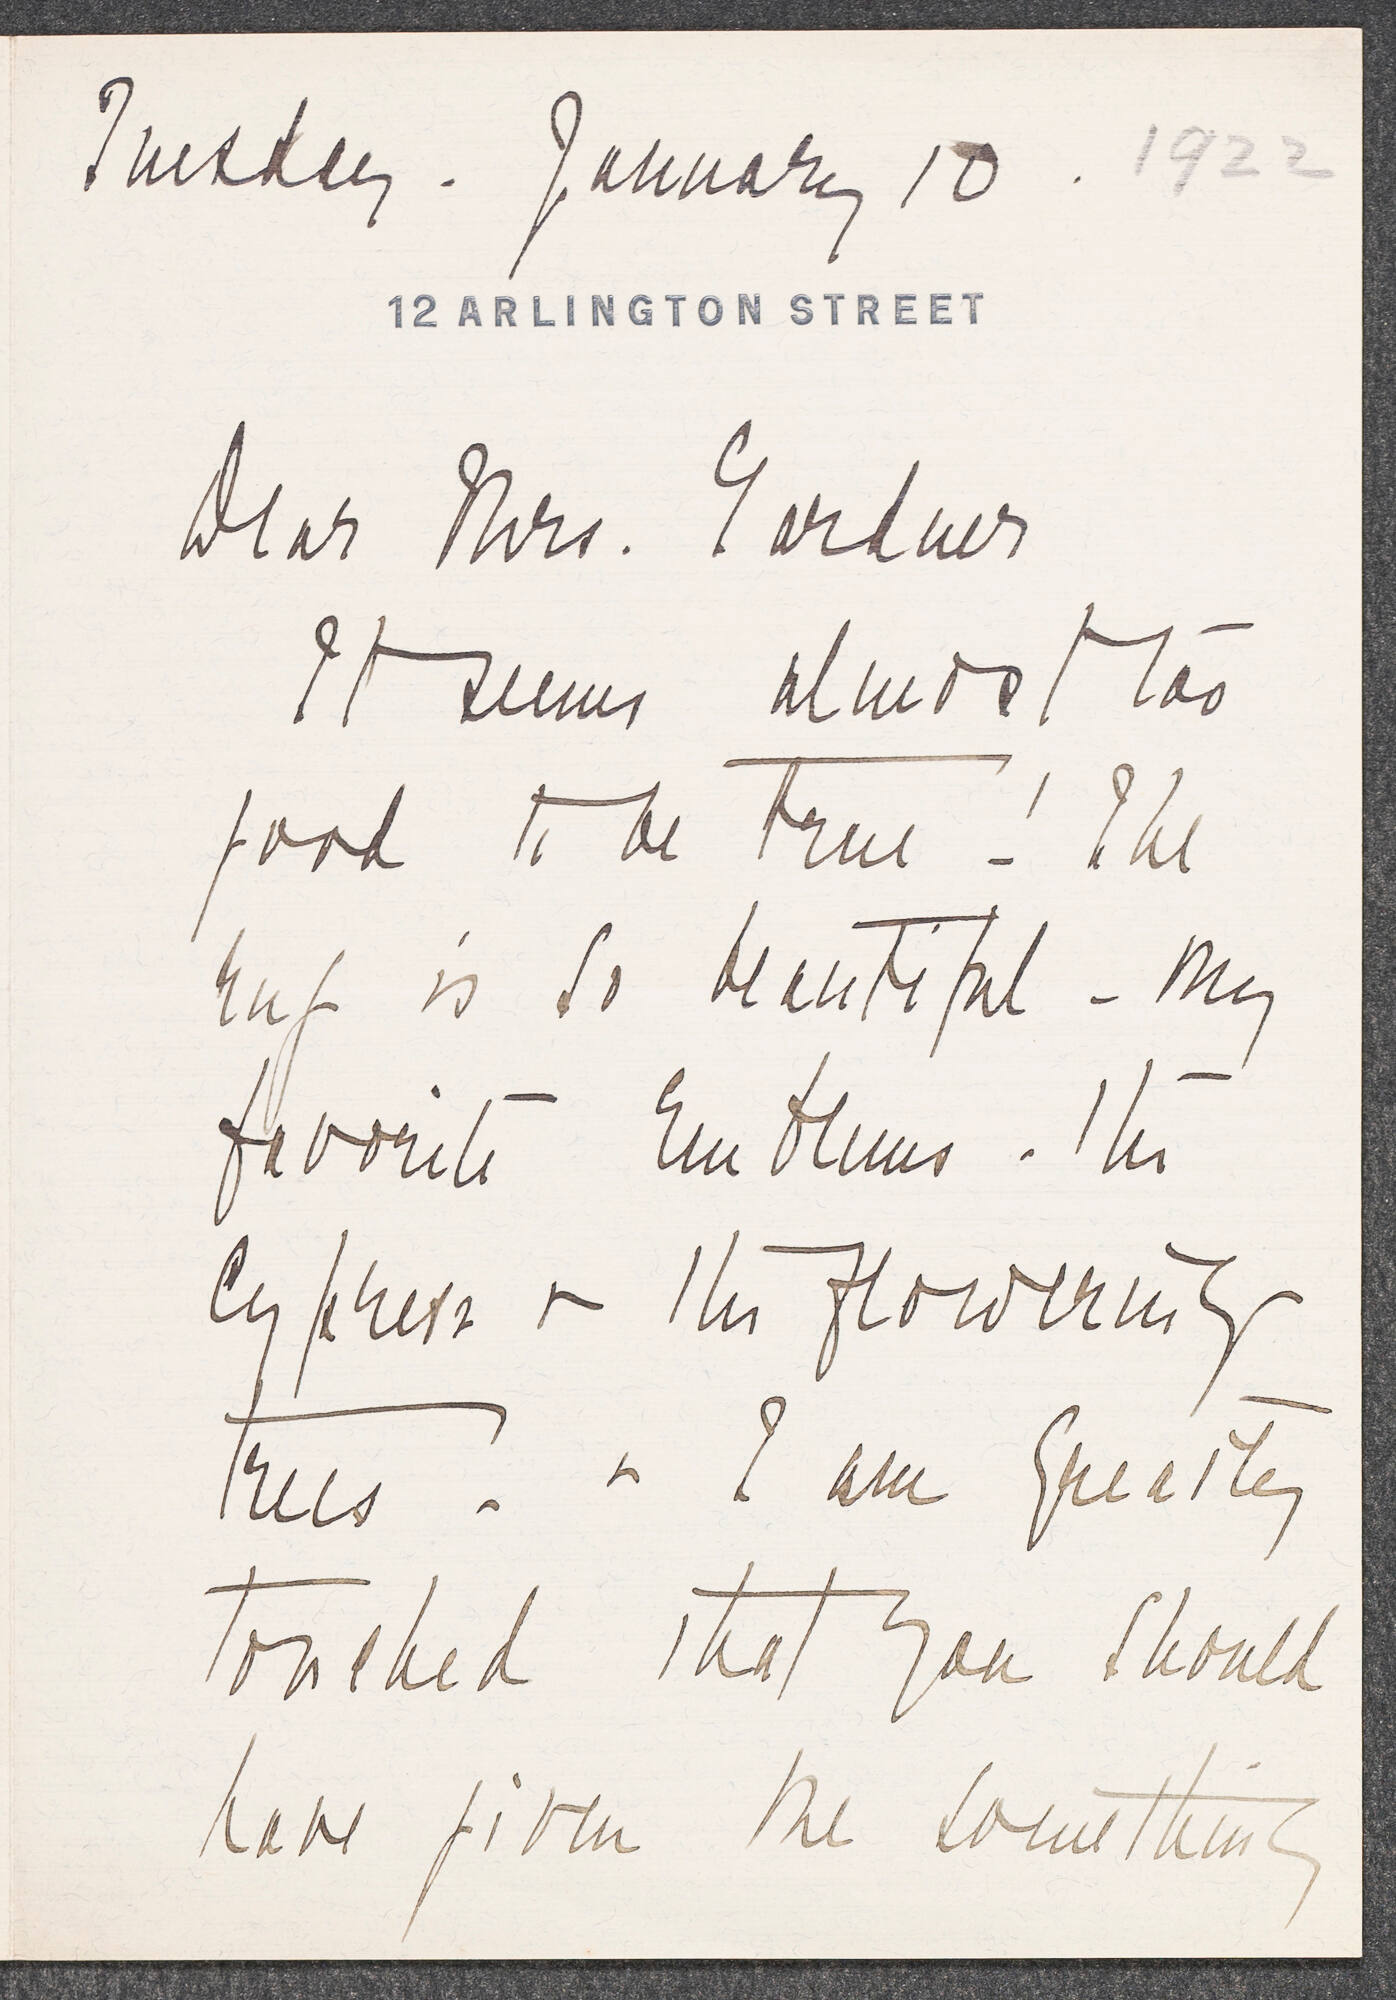 Tuesday - January 10 . 1922
12 ARLINGTON STREET
Dear Mrs. Gardner
It seems almost too
good to be true - ! The
rug is so beautiful - my
favorite Emblems - the
Cypress & the flowering
trees - & I am greatly
touched that you should
have given me something